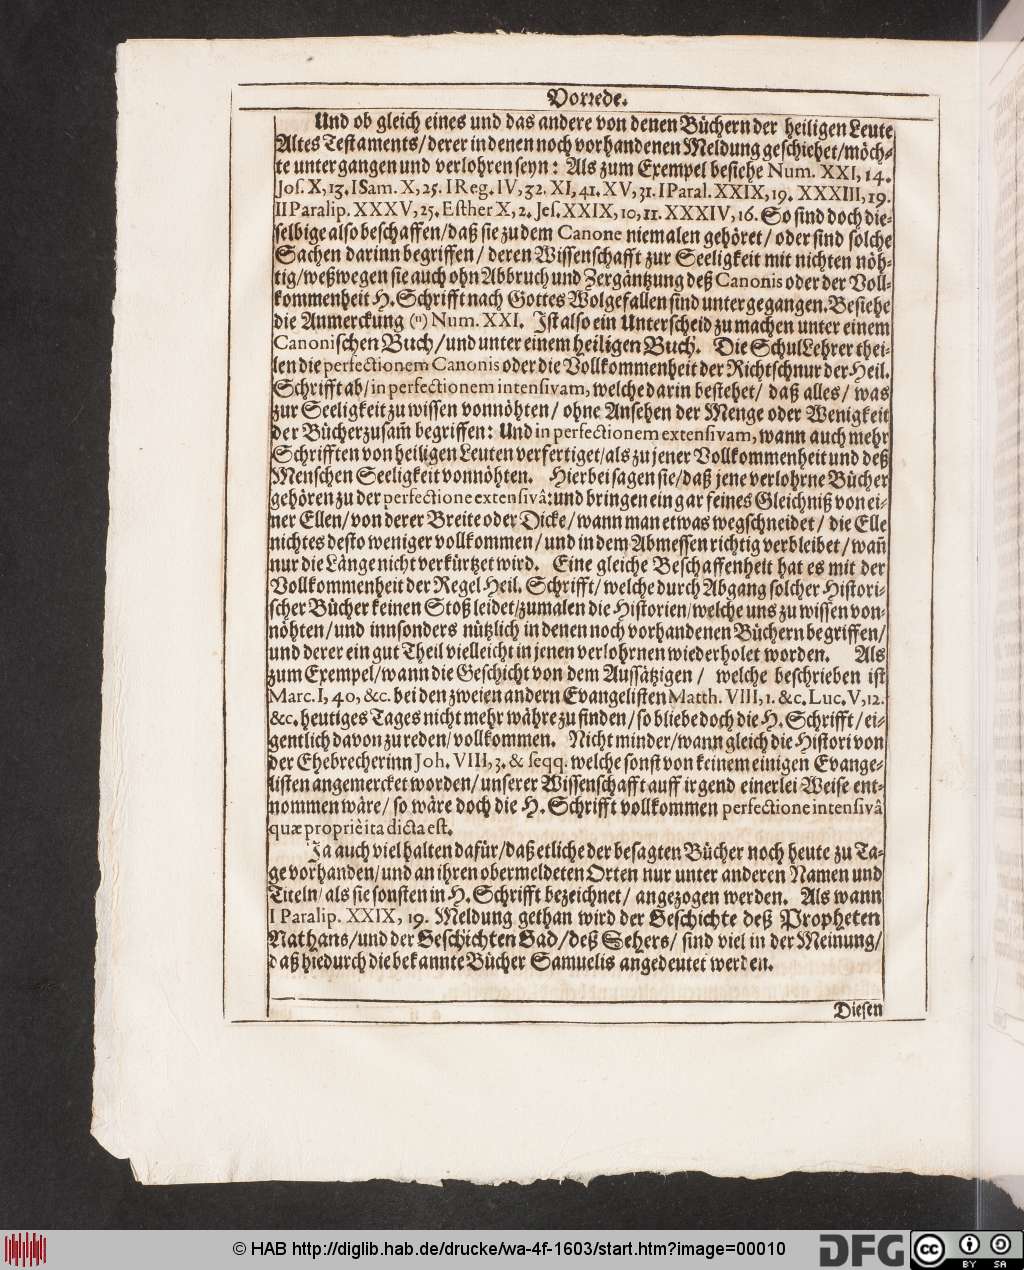 Vorrede.
Und ob gleich eines und das andere von denen Büchern der heiligen Leute
Altes Testaments/ derer in denen noch vorhandenen Meldung geschiehet/ möch-
te untergangen und verlohren seyn: Als zum Exempel besiehe Num. XXI, 14.
Jos. X, 13. I Sam. X, 25. I Reg. IV, 32. XI, 41. XV, 31. I Paral. XXIX, 19. XXXIII, 19.
II Paralip. XXXV, 25. Esther X, 2. Jes. XXIX, 10, 11. XXXIV, 16. So sind doch die-
selbige also beschaffen/ daß sie zu dem Canone niemalen gehöret/ oder sind solche
Sachen darinn begriffen/ deren Wissenschafft zur Seeligkeit mit nichten nöh-
tig/ weßwegen sie auch ohn Abbruch und Zergäntzung deß Canonis oder der Voll-
kommenheit H. Schrifft nach Gottes Wolgefallen sind unter gegangen. Besiehe
die Anmerckung (n) Num. XXI. Ist also ein Unterscheid zu machen unter einem
Canonischen Buch/ und unter einem heiligen Buch. Die SchulLehrer thei-
len die perfectionem Canonis oder die Vollkommenheit der Richtschnur der Heil.
Schrifft ab/ in perfectionem intensivam, welche darin bestehet/ daß alles/ was
zur Seeligkeit zu wissen vonnöhten/ ohne Ansehen der Menge oder Wenigkeit
der Bücher zusam̃ begriffen: Und in perfectionem extensivam, wann auch mehr
Schrifften von heiligen Leuten verfertiget/ als zu jener Vollkommenheit und deß
Menschen Seeligkeit vonnöhten. Hierbei sagen sie/ daß jene verlohrne Bücher
gehören zu der perfectione extensivâ: und bringen ein gar feines Gleichniß von ei-
ner Ellen/ von derer Breite oder Dicke/ wann man etwas wegschneidet/ die Elle
nichtes desto weniger vollkommen/ und in dem Abmessen richtig verbleibet/ wañ
nur die Länge nicht verkürtzet wird. Eine gleiche Beschaffenheit hat es mit der
Vollkommenheit der Regel Heil. Schrifft/ welche durch Abgang solcher Histori-
scher Bücher keinen Stoß leidet/ zumalen die Historien/ welche uns zu wissen von-
nöhten/ und innsonders nützlich in denen noch vorhandenen Büchern begriffen/
und derer ein gut Theil vielleicht in jenen verlohrnen wiederholet worden. Als
zum Exempel/ wann die Geschicht von dem Aussätzigen/ welche beschrieben ist
Marc. I, 40, &c. bei den zweien andern Evangelisten Matth. VIII, 1. &c. Luc. V, 12.
&c. heutiges Tages nicht mehr währe zu finden/ so bliebe doch die H. Schrifft/ ei-
gentlich davon zu reden/ vollkommen. Nicht minder/ wann gleich die Histori von
der Ehebrecherinn Joh. VIII, 3. & seqq. welche sonst von keinem einigen Evange-
listen angemercket worden/ unserer Wissenschafft auff irgend einerlei Weise ent-
nommen wäre/ so wäre doch die H. Schrifft vollkommen perfectione intensivâ
quæ propriè ita dicta est.
Ja auch viel halten dafür/ daß etliche der besagten Bücher noch heute zu Ta-
ge vorhanden/ und an ihren obermeldeten Orten nur unter anderen Namen und
Titeln/ als sie sonsten in H. Schrifft bezeichnet/ angezogen werden. Als wann
I Paralip. XXIX, 19. Meldung gethan wird der Geschichte deß Propheten
Nathans/ und der Geschichten Gad/ deß Sehers/ sind viel in der Meinung/
daß hiedurch die bekannte Bücher Samuelis angedeutet werden.
Diesen
© HAB http://diglib.hab.de/drucke/wa-4f-1603/start.htm?image=00010
DFG
cc BY SA